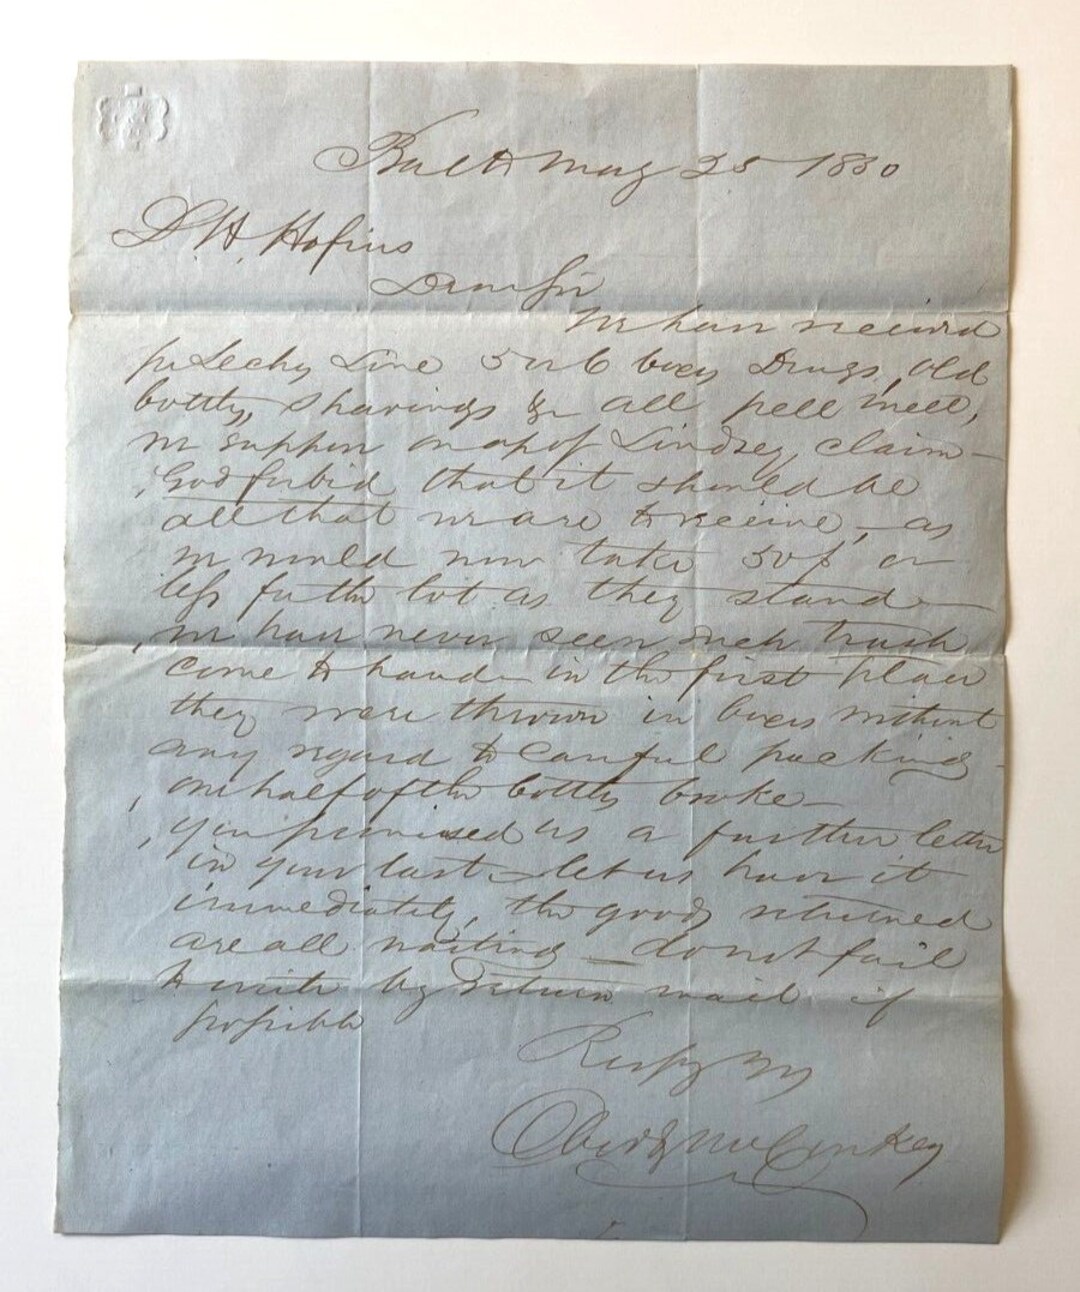 Balto May 25 1850
D. H. Hofius
Dear Sir
We have received
pr Leechs Line 5 or 6 boxes Drugs, old
bottles, shavings &c all pell mell,
we suppose on a/c of Lindsey claim—
God forbid that it should be
all that we are to receive, — as
we would now take 50$ or
less for the lot as they stand—
we have never seen such trash
come to hand— in the first place
they were thrown in boxes without
any regard to careful packing—
one half of the bottles broke—
you promised us a further letter
in your last— let us have it
immediately, the goods returned
are all waiting — do not fail
to write by return mail if
possible
Respy Yrs
& McConkey